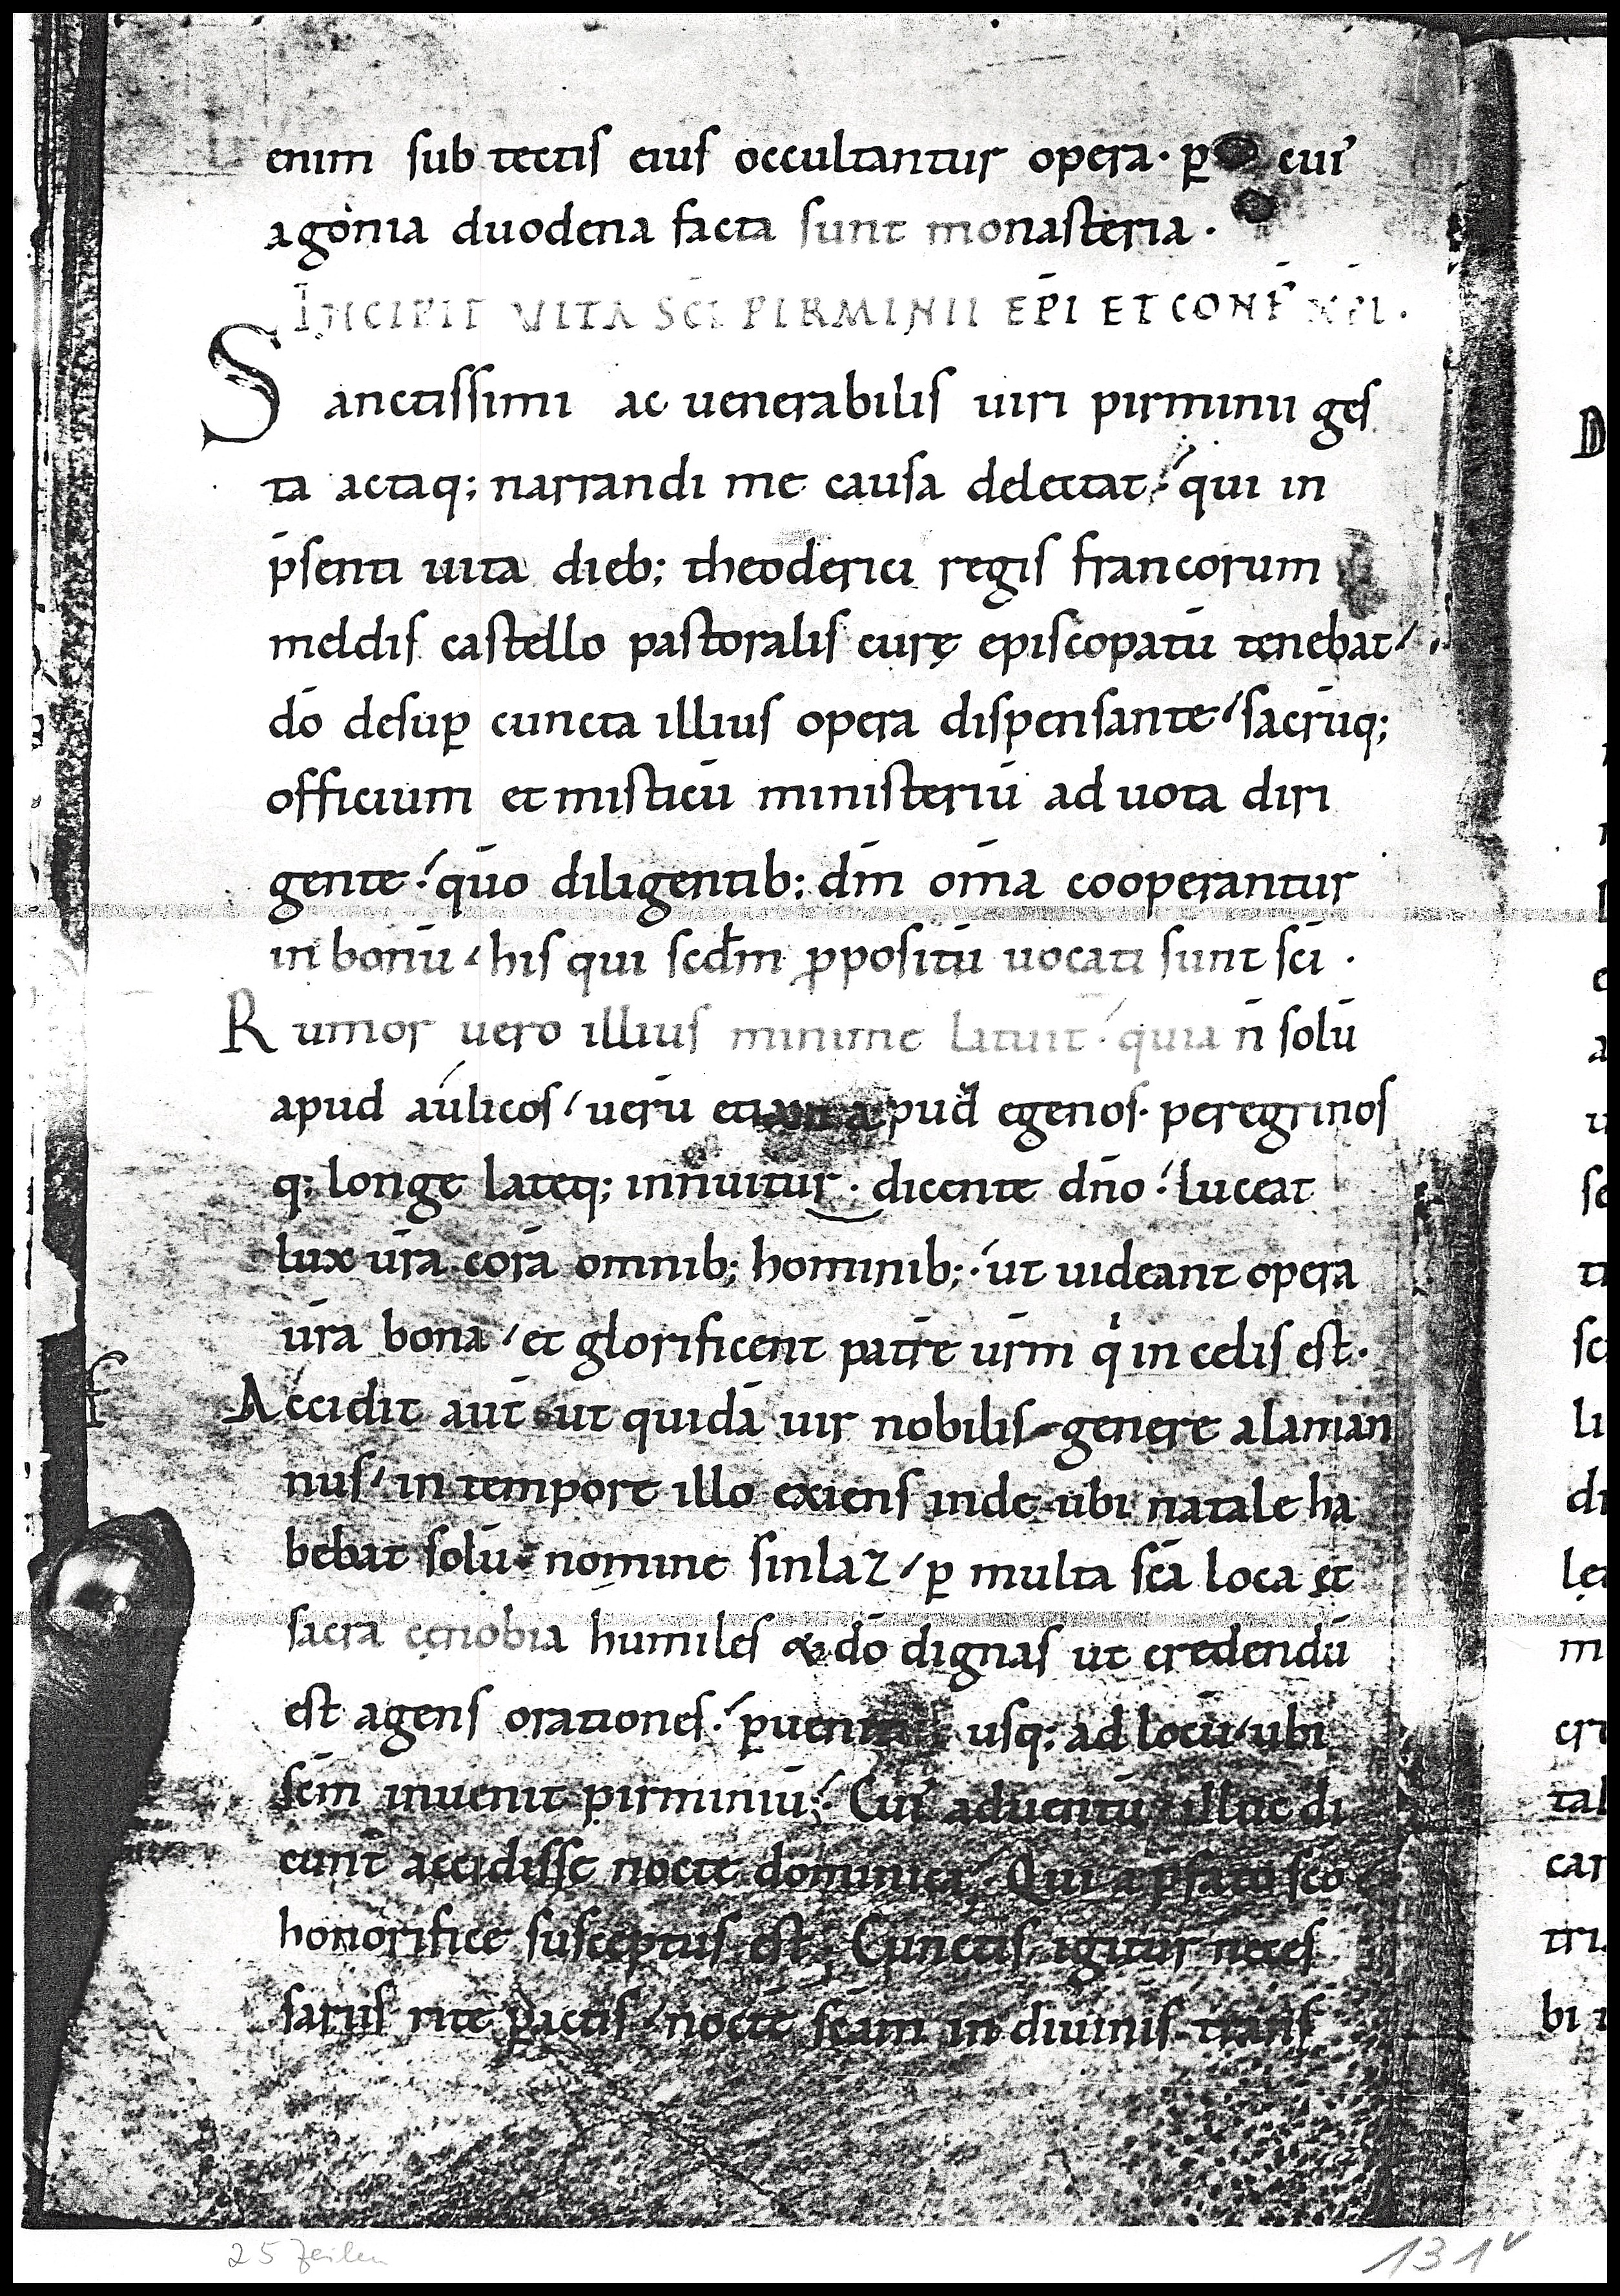 enim sub tectis eius occultantur opera. p̲ cui᾽
agonia duodena facta sunt monasteria.
INCIPIT VITA SC̄I PIRMINII EP̄I ET CONF̄ XP̄I.
Sanctissimi ac uenerabilis uiri pirminii ges
ta actaq; narrandi me causa delectat. qui in
p̄senti uita dieb; theoderici regis francorum
meldis castello pastoralis curę episcopatū tenebat.
dō desup̲ cuncta illius opera dispensante. sacrūq;
officium et misticū ministeriū ad uota diri
gente. qūo diligentib; dm̄ om̄a cooperantur
in bonū. his qui scdm̄ ꝓpositū uocati sunt sc̄i.
Rumor uero illius minime latuit. quia n̄ solū
apud aulicos. uerū etiam apud egenos. peregrinos
q; longe lateq; innuitur. dicente dn̄o. luceat
lux ur̄a corā omnib; hominib;. ut uideant opera
ur̄a bona. et glorificent patrē urm̄ qⁱ in celis est.
Accidit aut̄ ut quidā uir nobilis genere alaman
nus. in tempore illo exiens inde ubi natale ha
bebat solū. nomine sinlaz. p̲ multa sc̄a loca et
sacra cenobia humiles & dō dignas ut credendū
est agens orationes. p̲uenit usq; ad locū. ubi
scm̄ inuenit pirminiū. Cui᾽ aduentū illuc di
cunt accidisse nocte dominica. Qui a p̄fato sc̄o
honorifice susceptus est; Cunctis igitur neces
sariis rite p̲actis. noctē scām in diuinis trans
f
25 Zeilen
131v